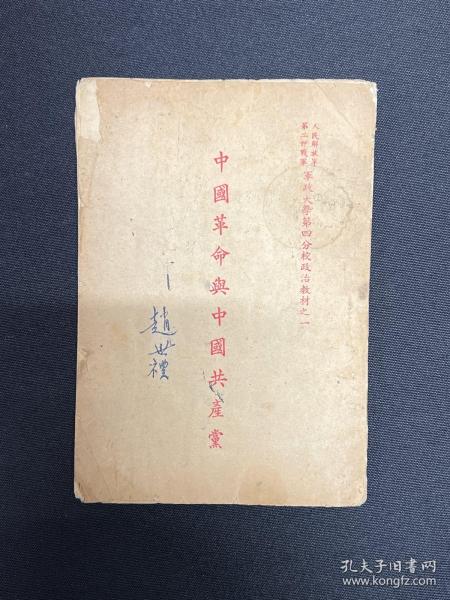 人民解放军
第二野战军
軍政大學第四分校政治教材之一
中國革命與中國共產黨
趙世禮
孔夫子旧书网
www.kongfz.com